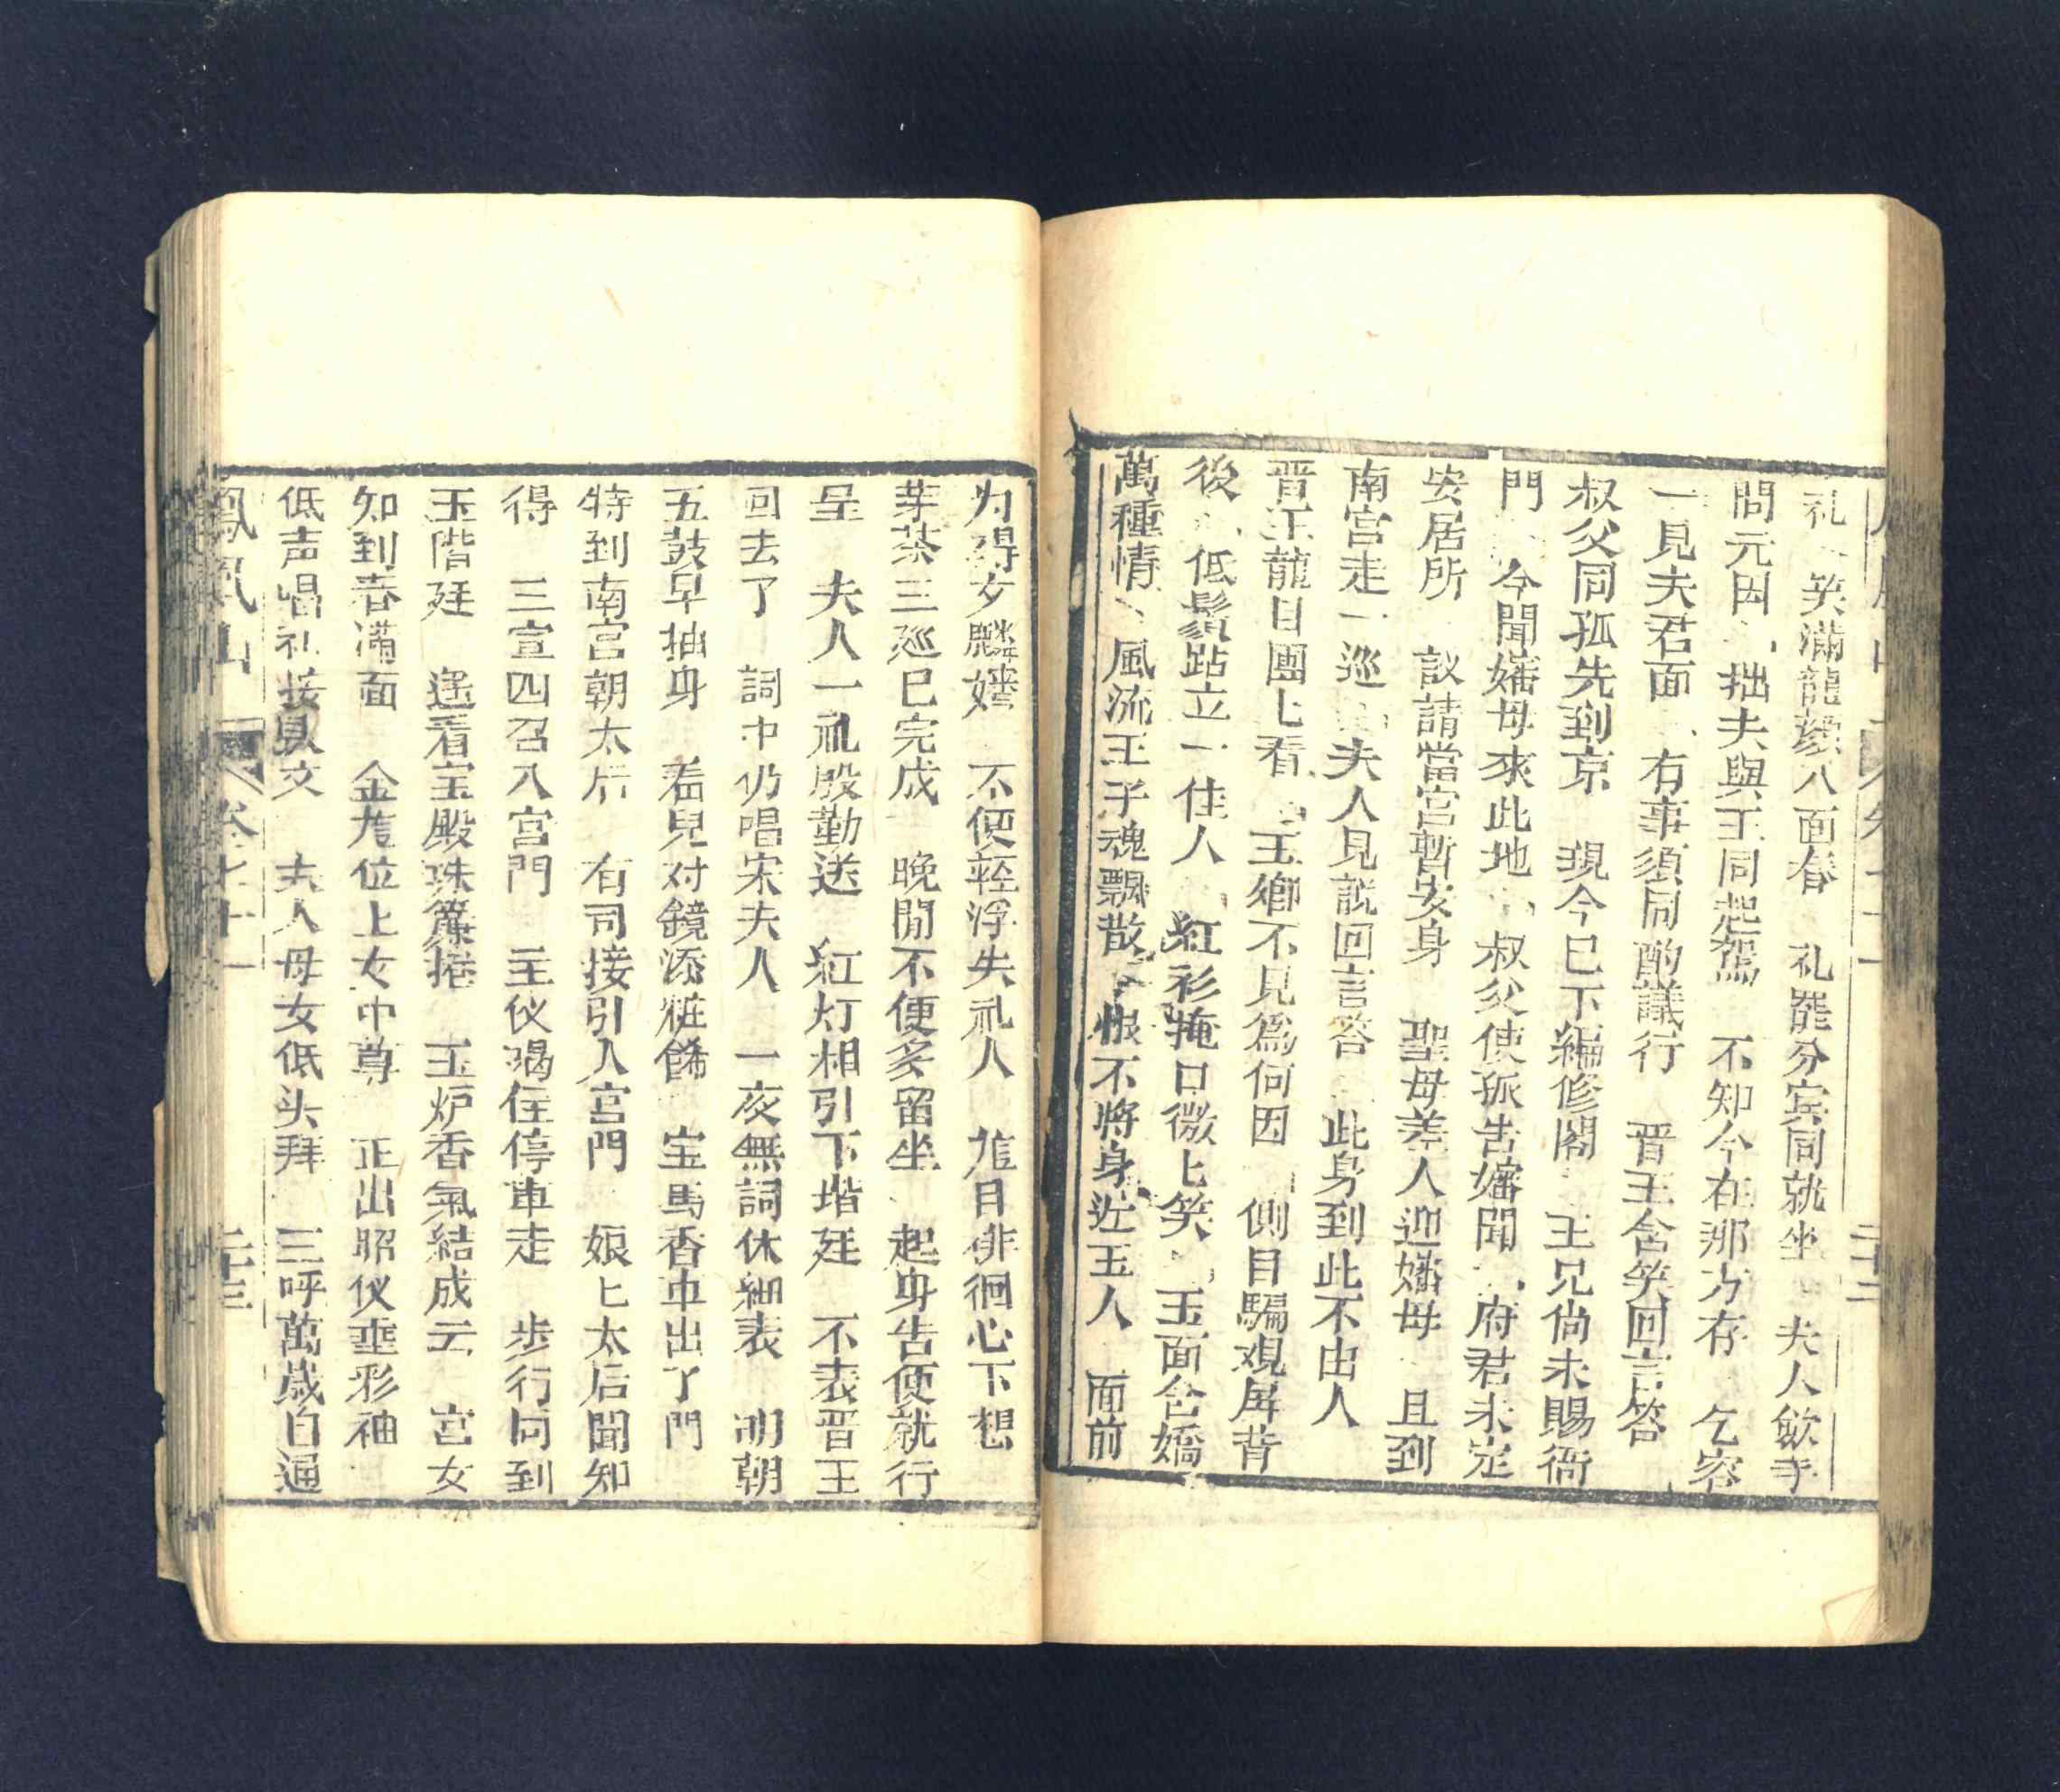 礼 笑滿龍顏八面春 礼罷分宾同就坐 夫人歛手
問元因 拙夫與王同起駕 不知今在那方存 乞容
一見夫君面 有事須同酌議行 晋王含笑回言答
叔父同孤先到京 現今已下編修閣 王兄尙未賜衙
門 今聞嬸母來此地 叔父使孤告嬸聞 府君未定
安居所 議請當宮暫安身 聖母差人迎嬸母 且到
南宮走一巡 夫人見說回言答 此身到此不由人
晋王龍目團匕看 王鄉不見爲何因 側目騙覌屏背
後 低鬟跕立一佳人 紅衫掩口微匕笑 玉面含嬌
萬種情 風流王子魂飄散 恨不將身近玉人 面前
为碍女麟嬸 不便輕浮失礼人 龙目徘徊心下想
芽茶三廵已完成 晚間不便多留坐 起身告便就行
呈 夫人一礼殷勤送 红灯相引下堦廷 不表晋王
回去了 詞中仍唱宋夫人 一夜無詞休細表 明朝
五鼓早抽身 看兒对鏡添粧餙 宝馬香車出了門
特到南宫朝太后 有司接引入宫門 娘匕太后聞知
得 三宣四召入宮門 主仪喝住停車走 步行同到
玉階廷 遙看宝殿珠簾捲 玉炉香氣結成云 宫女
知到春滿面 金龙位上女中尊 正出昭仪垂彩袖
低声唱礼接見文 夫人母女低头拜 三呼萬歲自通
鳳凰山 卷七十一 二十三